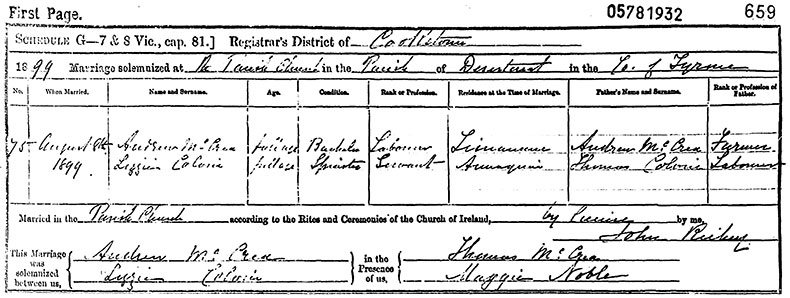 First Page. 05781932 659
SCHEDULE G—7 & 8 Vic., cap. 81.] Registrar's District of Cookstown
1899 Marriage solemnized at the Parish Church in the Parish of Desertcreat in the Co. of Tyrone
No. When Married. Name and Surname. Age. Condition. Rank or Profession. Residence at the Time of Marriage. Father's Name and Surname. Rank or Profession of Father.
75 August 1899. Andrew McCrea full age Bachelor Labourer Andrew McCrea Farmer
Lizzie Colvin full age Spinster Servant Thomas Colvin Labourer
Married in the Parish Church according to the Rites and Ceremonies of the Church of Ireland, by by me,
John
This Marriage was solemnized between us, Andrew McCrea in the Presence of us, Thomas McCrea
Lizzie Colvin Maggie Noble